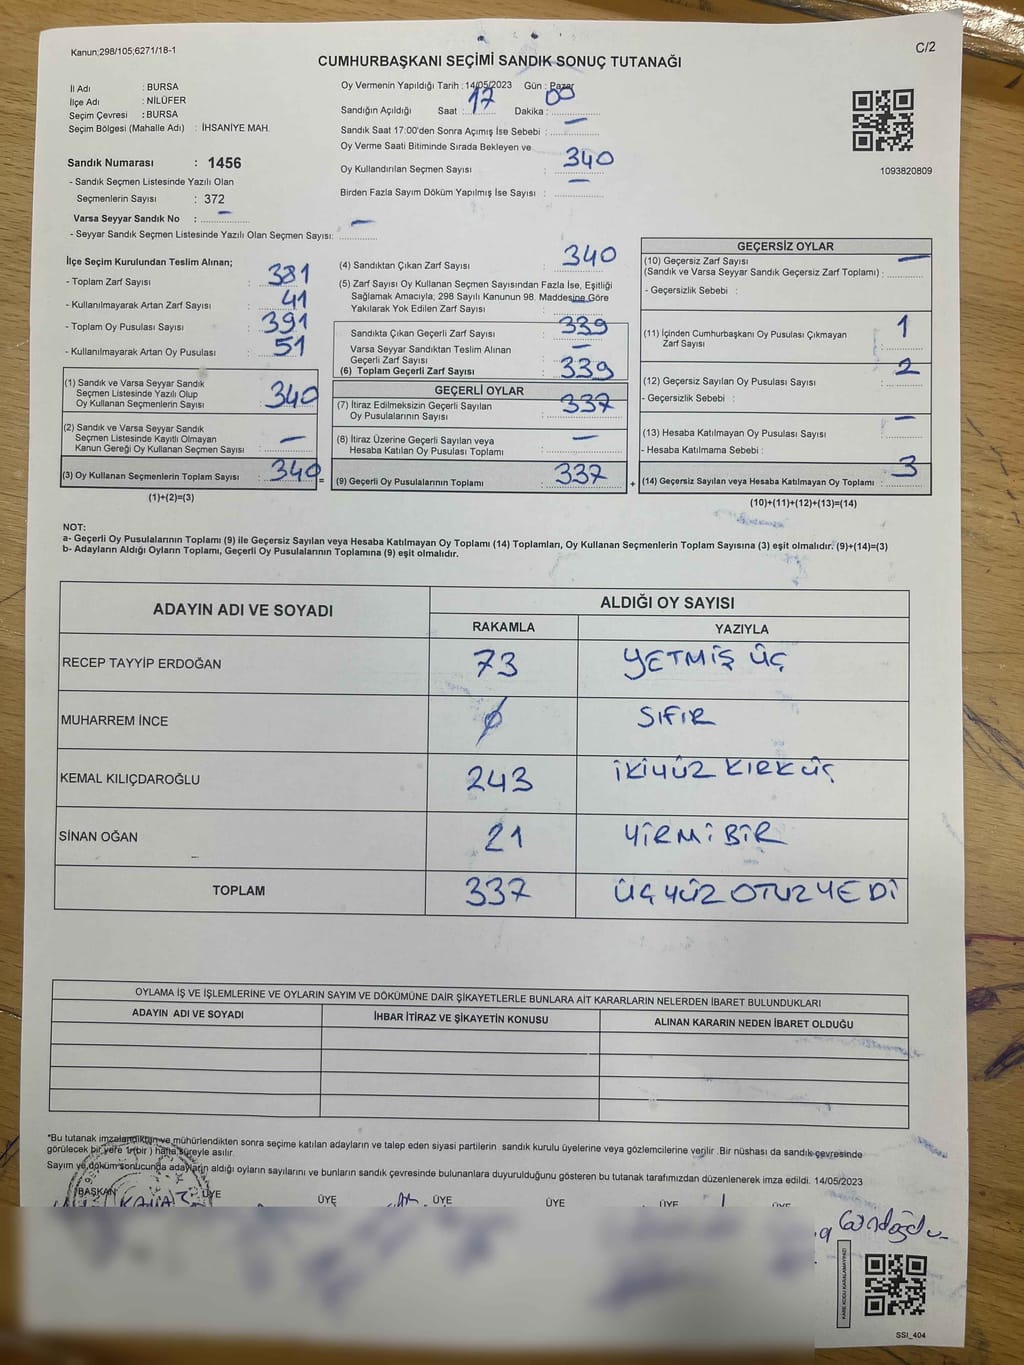 Kanun;298/105;6271/18-1
C/2
CUMHURBAŞKANI SEÇİMİ SANDIK SONUÇ TUTANAĞI
İl Adı : BURSA
İlçe Adı : NİLÜFER
Seçim Çevresi : BURSA
Seçim Bölgesi (Mahalle Adı) : İHSANİYE MAH.
Sandık Numarası : 1456
- Sandık Seçmen Listesinde Yazılı Olan
Seçmenlerin Sayısı : 372
Varsa Seyyar Sandık No : —
- Seyyar Sandık Seçmen Listesinde Yazılı Olan Seçmen Sayısı: —
Oy Vermenin Yapıldığı Tarih : 14/05/2023 Gün : Pazar
Sandığın Açıldığı Saat : 17 Dakika : 00
Sandık Saat 17:00'den Sonra Açımış İse Sebebi : —
Oy Verme Saati Bitiminde Sırada Bekleyen ve
Oy Kullandırılan Seçmen Sayısı : 340
Birden Fazla Sayım Döküm Yapılmış İse Sayısı : —
1093820809
İlçe Seçim Kurulundan Teslim Alınan;
- Toplam Zarf Sayısı : 381
- Kullanılmayarak Artan Zarf Sayısı : 41
- Toplam Oy Pusulası Sayısı : 391
- Kullanılmayarak Artan Oy Pusulası : 51
(1) Sandık ve Varsa Seyyar Sandık
Seçmen Listesinde Yazılı Olup
Oy Kullanan Seçmenlerin Sayısı : 340
(2) Sandık ve Varsa Seyyar Sandık
Seçmen Listesinde Kayıtlı Olmayan
Kanun Gereği Oy Kullanan Seçmen Sayısı : —
(3) Oy Kullanan Seçmenlerin Toplam Sayısı : 340
(1)+(2)=(3)
(4) Sandıktan Çıkan Zarf Sayısı : 340
(5) Zarf Sayısı Oy Kullanan Seçmen Sayısından Fazla İse, Eşitliği
Sağlamak Amacıyla, 298 Sayılı Kanunun 98. Maddesine Göre
Yakılarak Yok Edilen Zarf Sayısı : —
Sandıkta Çıkan Geçerli Zarf Sayısı : 339
Varsa Seyyar Sandıktan Teslim Alınan
Geçerli Zarf Sayısı : —
(6) Toplam Geçerli Zarf Sayısı : 339
GEÇERLİ OYLAR
(7) İtiraz Edilmeksizin Geçerli Sayılan
Oy Pusulalarının Sayısı : 337
(8) İtiraz Üzerine Geçerli Sayılan veya
Hesaba Katılan Oy Pusulası Toplamı : —
=
(9) Geçerli Oy Pusulalarının Toplamı : 337
GEÇERSİZ OYLAR
(10) Geçersiz Zarf Sayısı
(Sandık ve Varsa Seyyar Sandık Geçersiz Zarf Toplamı) : —
- Geçersizlik Sebebi :
(11) İçinden Cumhurbaşkanı Oy Pusulası Çıkmayan
Zarf Sayısı : 1
(12) Geçersiz Sayılan Oy Pusulası Sayısı : 2
- Geçersizlik Sebebi :
(13) Hesaba Katılmayan Oy Pusulası Sayısı : —
- Hesaba Katılmama Sebebi :
+
(14) Geçersiz Sayılan veya Hesaba Katılmayan Oy Toplamı : 3
(10)+(11)+(12)+(13)=(14)
NOT:
a- Geçerli Oy Pusulalarının Toplamı (9) ile Geçersiz Sayılan veya Hesaba Katılmayan Oy Toplamı (14) Toplamları, Oy Kullanan Seçmenlerin Toplam Sayısına (3) eşit olmalıdır. (9)+(14)=(3)
b- Adayların Aldığı Oyların Toplamı, Geçerli Oy Pusulalarının Toplamına (9) eşit olmalıdır.
ADAYIN ADI VE SOYADI
ALDIĞI OY SAYISI
RAKAMLA YAZIYLA
RECEP TAYYİP ERDOĞAN 73 YETMİŞ ÜÇ
MUHARREM İNCE 0 SIFIR
KEMAL KILIÇDAROĞLU 243 İKİYÜZ KIRK ÜÇ
SİNAN OĞAN 21 YİRMİ BİR
TOPLAM 337 ÜÇ YÜZ OTUZ YEDİ
OYLAMA İŞ VE İŞLEMLERİNE VE OYLARIN SAYIM VE DÖKÜMÜNE DAİR ŞİKAYETLERLE BUNLARA AİT KARARLARIN NELERDEN İBARET BULUNDUKLARI
ADAYIN ADI VE SOYADI İHBAR İTİRAZ VE ŞİKAYETİN KONUSU ALINAN KARARIN NEDEN İBARET OLDUĞU
*Bu tutanak imzalandıktan ve mühürlendikten sonra seçime katılan adayların ve talep eden siyasi partilerin sandık kurulu üyelerine veya gözlemcilerine verilir .Bir nüshası da sandık çevresinde
görülecek bir yere 1 (bir ) hafta süreyle asılır.
Sayım ve döküm sonucunda adayların aldığı oyların sayılarını ve bunların sandık çevresinde bulunanlara duyurulduğunu gösteren bu tutanak tarafımızdan düzenlenerek imza edildi. 14/05/2023
BAŞKAN ÜYE ÜYE ÜYE ÜYE ÜYE ÜYE
KARE KODU KARALAMAYINIZ!
SSI_404